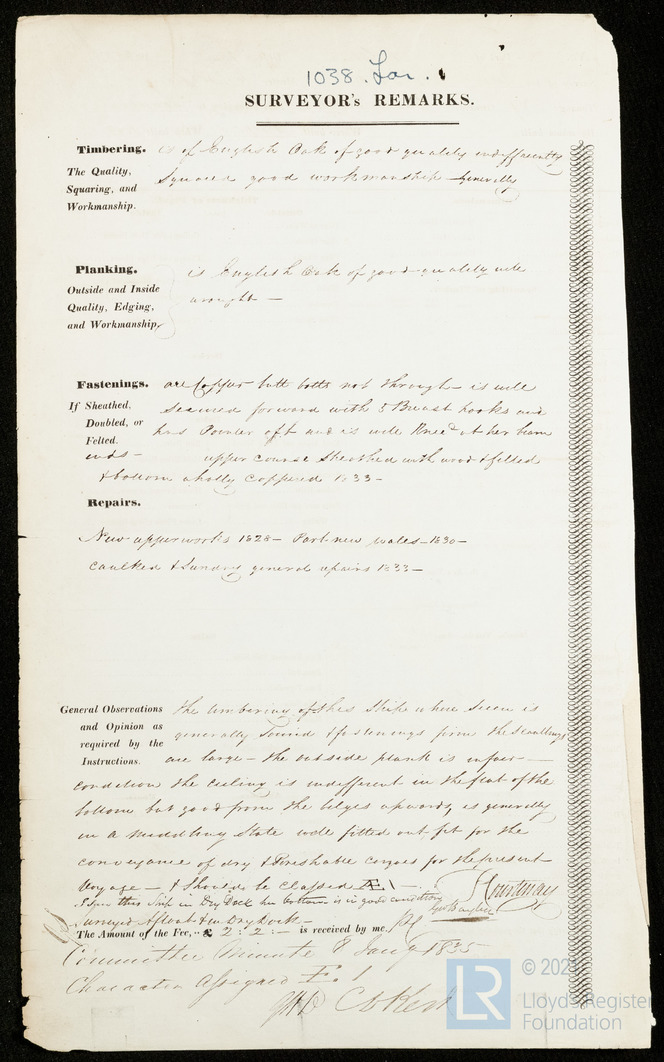 1038. Lon.
SURVEYOR's REMARKS.
Timbering. is of English Oak of good quality indifferently
The Quality, Squared good workmanship generally
Squaring, and
Workmanship.
Planking. is English Oak of good quality well
Outside and Inside wrought —
Quality, Edging,
and Workmanship,
Fastenings. are Copper butt bolts not through — is well
If Sheathed, secured forward with 5 Breast hooks and
Doubled, or has Pointer aft and is well Kneed at her beam
Felted.
ends — upper course Sheathed with wood & felted
& bottom wholly Coppered 1833 —
Repairs.
New upperworks 1828 — Part new wales — 1830 —
Caulked & Sundry general repairs 1833 —
General Observations the timbering of this Ship where seen is
and Opinion as generally Sound & fastenings from the Scantlings
required by the are large — the outside plank is in fair —
Instructions.
condition the ceiling is indifferent in the flat of the
bottom but good from the bilges upwards, is generally
in a Middling State well fitted out fit for the
conveyance of dry & Perishable cargoes for the present
Voyage — & Should be Classed Æ 1 — Courtenay
this Ship in Dry Dock her bottom is in good condition
Surveyed Afloat & in Dry Dock —
The Amount of the Fee, - £ 2: 2: — is received by me,
Committee Minute 8 Jany 1835
Character Assigned Æ. 1
LR
© 202
Lloyd's Register
Foundation